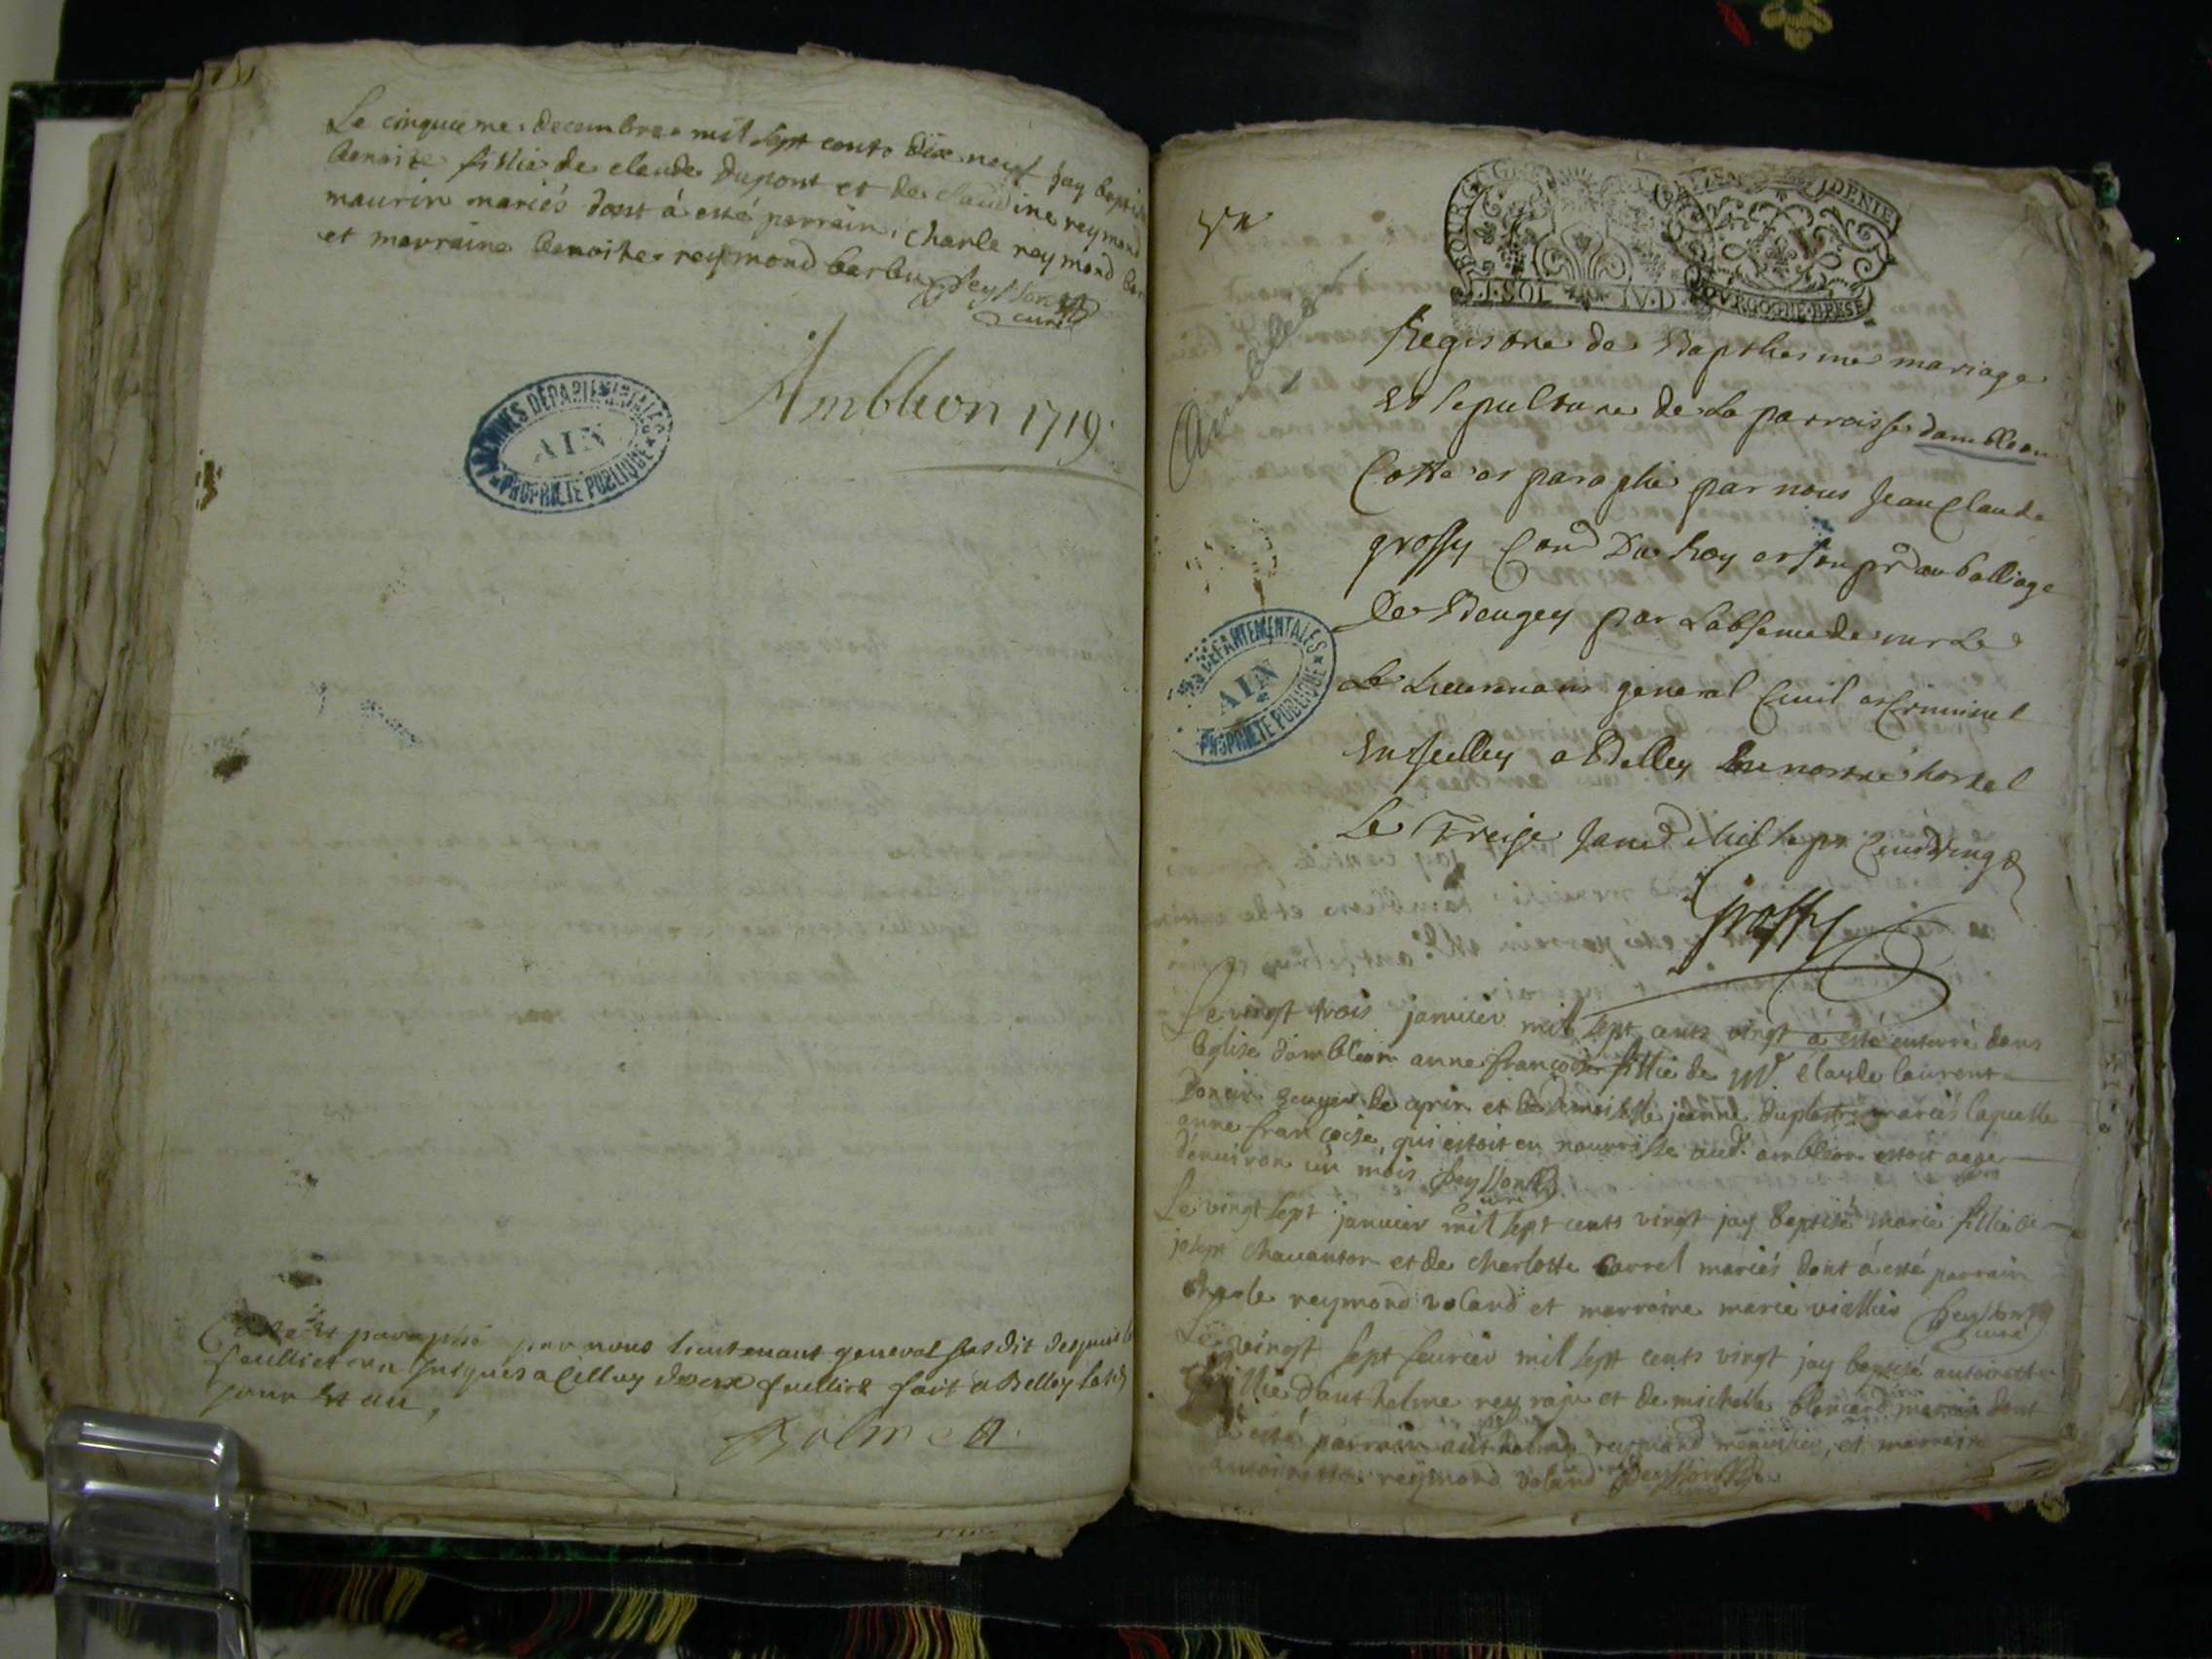 Le cinquieme decembre mil sept cents dix neuf jay baptisé
benoite fillie de claude Dupont et de claudine reymond
maurin mariés dont á esté parrain, charle reymond bar
et marraine benoite reymond barbu Peysson
curé
Ambleon 1719
ARCHIVES DÉPARTEMENTALES
AIN
PROPRIÉTÉ PUBLIQUE
Cotté et paraphé par nous lieutenant general susdit despuis le
feuillet un jusques a celluy deux feuillet fait a Belley lesd
jour et an,
GEN
DENIE
I.SOL IV.D BOVRGOGNE.BRESE
Ambleon
Registre de Bapthesme mariage
Et sepulture de La parroisse dambleon
Cotté et paraphé par nous Jean Claude
grossy Con.r Du Roy et son pr au balliage
De Beugey par Labsence de mr Le
Le Lieutenant general Civil et Criminel
Enseuelly a Belley En nostre hostel
Le Treize Janv Mil sept Cent vingt
Grossy
DÉPARTEMENTALES
AIN
PROPRIÉTÉ PUBLIQUE
Le vingt trois janvier mil sept cents vingt á esté enterré dans
leglise dambleon anne françoise fillie de Mr. claude laurent
Doncin ecuyer de cyrin et de demoiselle jeanne duplastre mariés laquelle
anne françoise qui estoit en nourrisse aud. ambleon estoit agee
denviron un mois Peysson
curé
Le vingt sept janvier mil sept cents vingt jay baptisé marie fillie de
josept chavanton et de charlotte carrel mariés dont á esté parrain
charle reymond voland et marraine marie viallier Peysson
curé
Le vingt sept fevrier mil sept cents vingt jay baptisé antoinette
fillie danthelme rey raju et de michelle blanchard mariés dont
á esté parrain anthelme reymond menusier, et marraine
antoinette reymond voland Peysson